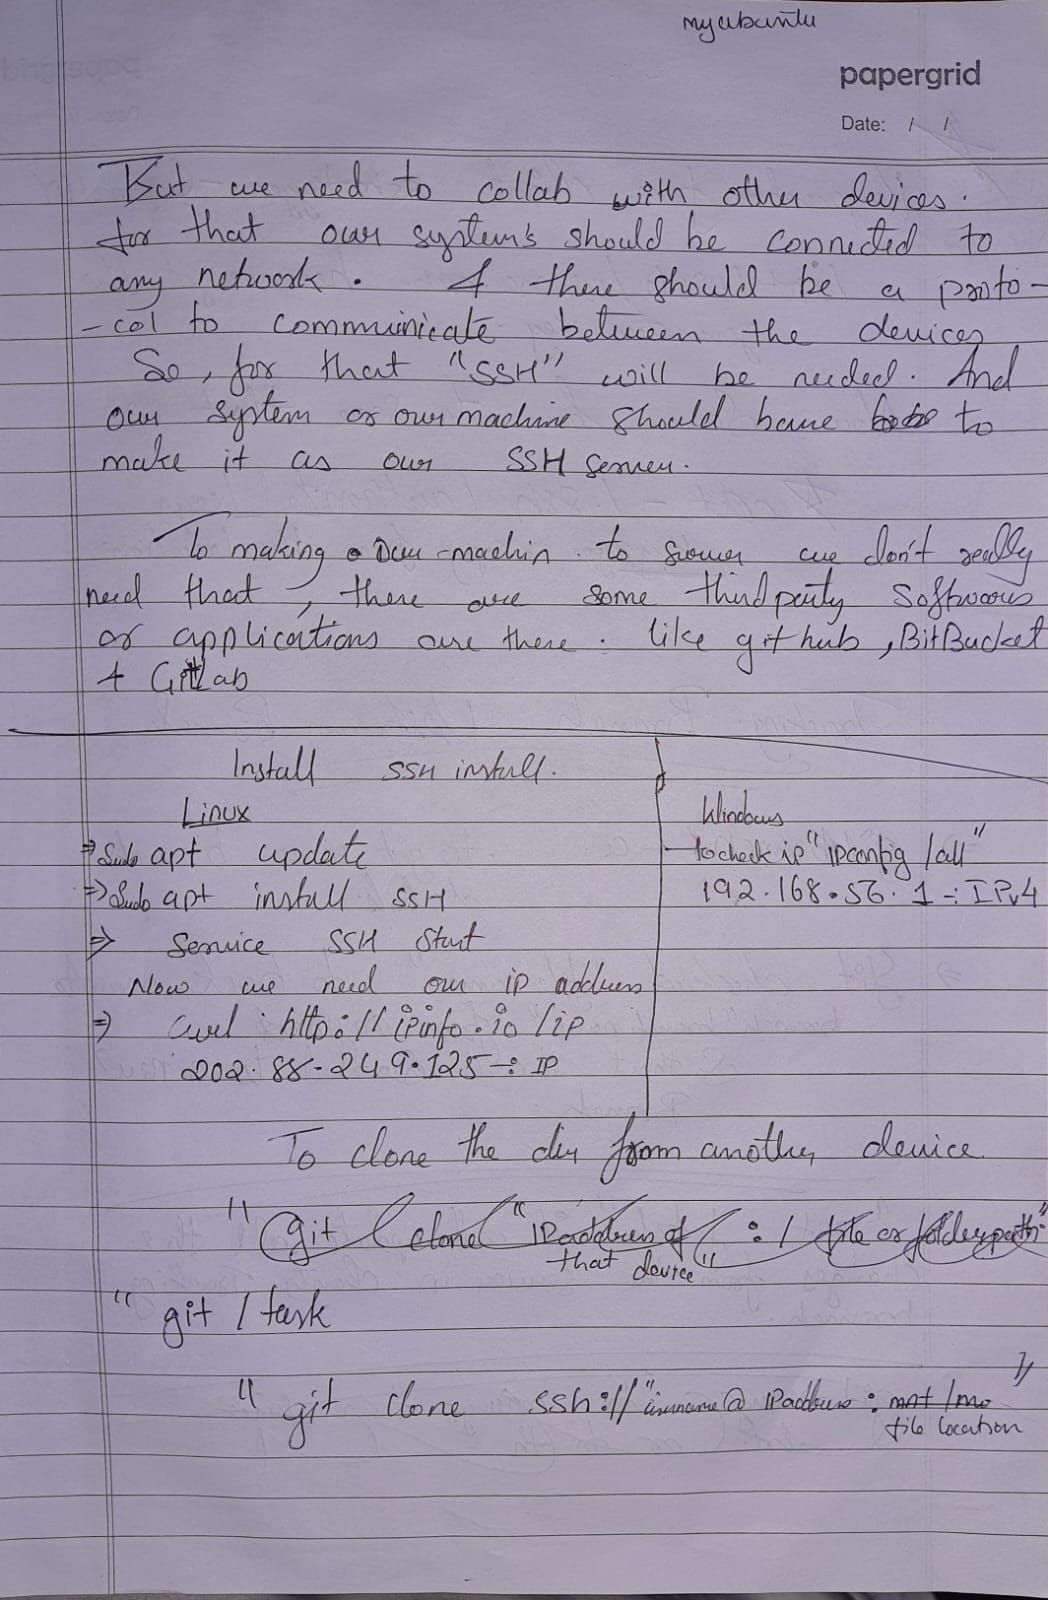 myubuntu
papergrid
Date: / /
But we need to collab with other devices.
for that our system's should be connected to
any network. & there should be a proto-
-col to communicate between the devices
So, for that "SSH" will be needed. And
our system or our machine should have to
make it as our SSH server.
To making our machin to server we don't really
need that, there are some third party softwares
or applications are there. like github, BitBucket
+ GitLab
Install SSH install.
Linux
⇒ Sudo apt update
⇒ Sudo apt install SSH
⇒ Service SSH Start
Now we need our ip address
⇒ Curl : http://ipinfo.io/ip
202.88.249.125 -: IP
Windows
to check ip "ipconfig /all"
192.168.56.1 -: IPv4
To clone the dir from another device.
"git clone "IPaddress of : / file or folder path"
that device"
"git / task
"git clone ssh://"username@ IPaddress : mnt /mo "
file location